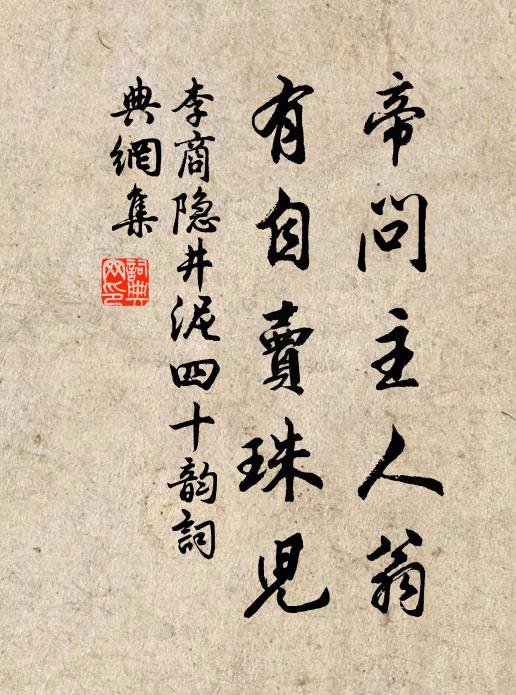 帝問主人翁
有自賣珠兒
李商隐井泥四十韵詞
典網集
詞典网印